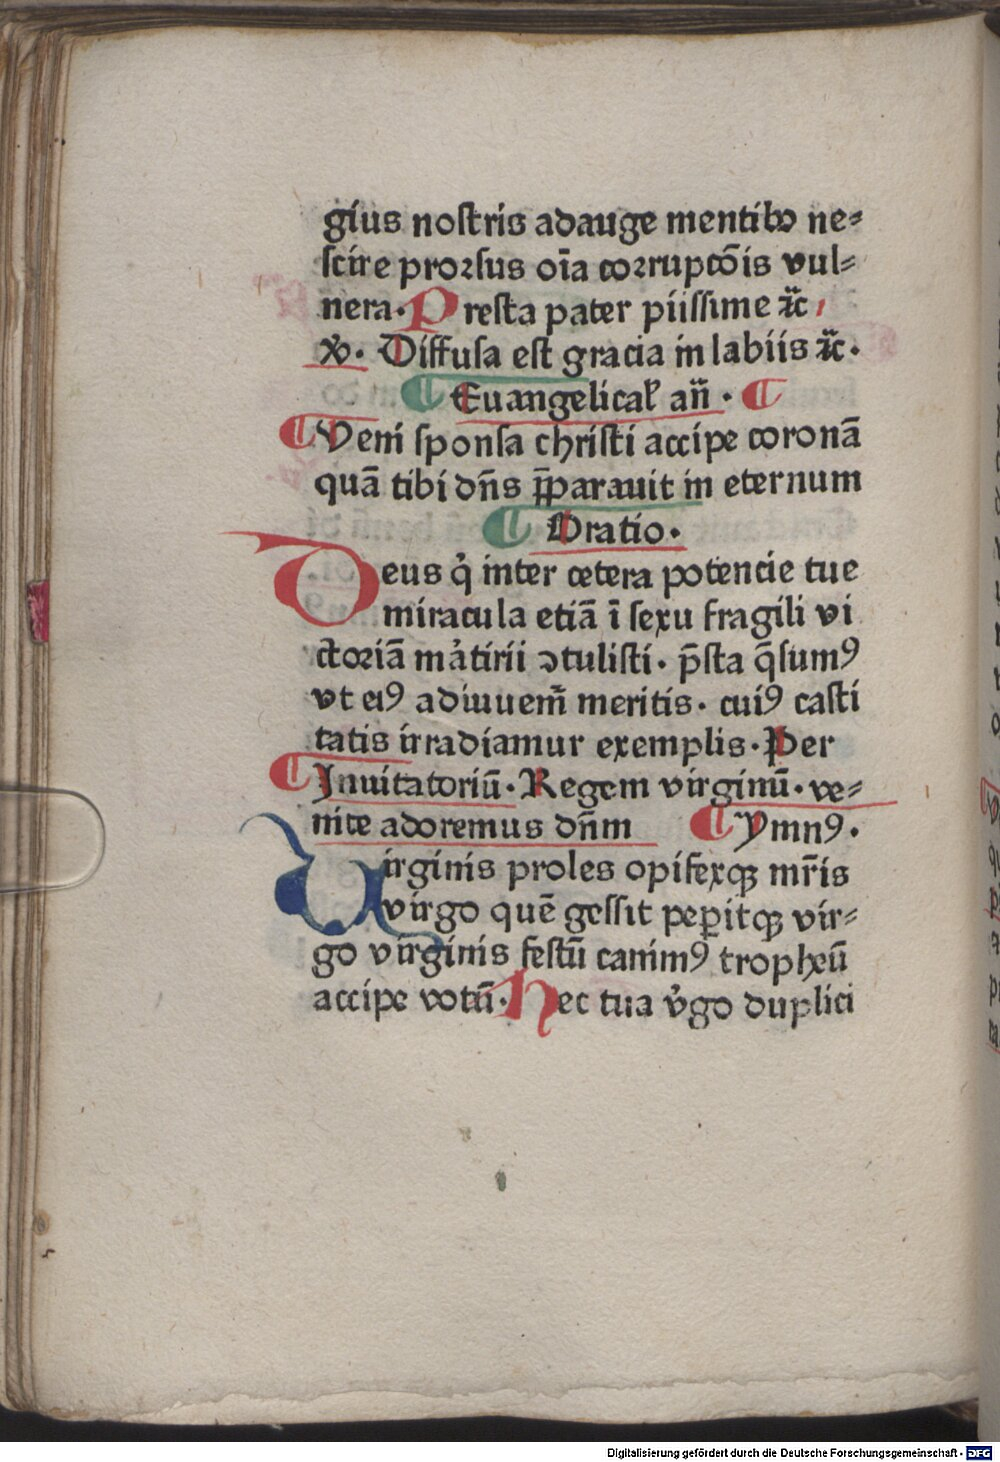 gius nostris adauge mentibꝫ ne⸗
scire prorsus oīa corrupcōis vul⸗
nera. Presta pater piissime ⁊c̄
℣. Diffusa est gracia in labiis ⁊c̄.
Euangelicał an̄.
Veni sponsa christi accipe coronā
quā tibi dn̄s p̄parauit in eternum
Oratio.
Deus qͥ inter cetera potencie tue
miracula etiā ī sexu fragili vi
ctoriā maͬtirii ↄtulisti. p̄sta q̄sumꝰ
vt eiꝰ adiuuem̄ meritis. cuiꝰ casti
tatis irradiamur exemplis. Per
Inuitatoriū. Regem virginū. ve⸗
nite adoremus dn̄m Ymnꝰ.
Virginis proles opifexqꝫ mr̄is
virgo quē gessit peꝑitqꝫ vir⸗
go virginis festū canimꝰ tropheū
accipe votū. Hec tua v̓go duplici
Digitalisierung gefördert durch die Deutsche Forschungsgemeinschaft - DFG